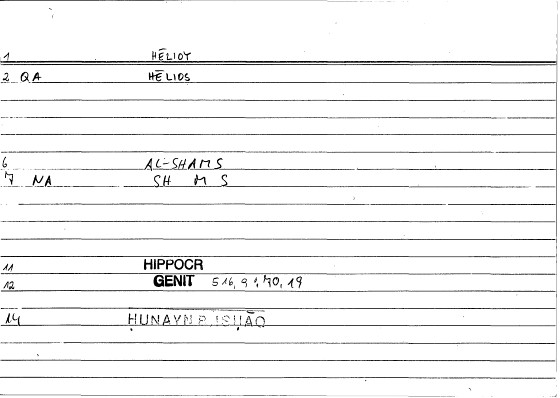 1 HĒLIOY
2 QA HĒLIOS
6 AL-SHAMS
7 NA SH M S
11 HIPPOCR
12 GENIT 516, 9 ; 70, 19
14 ḤUNAYN B. ISḤĀQ